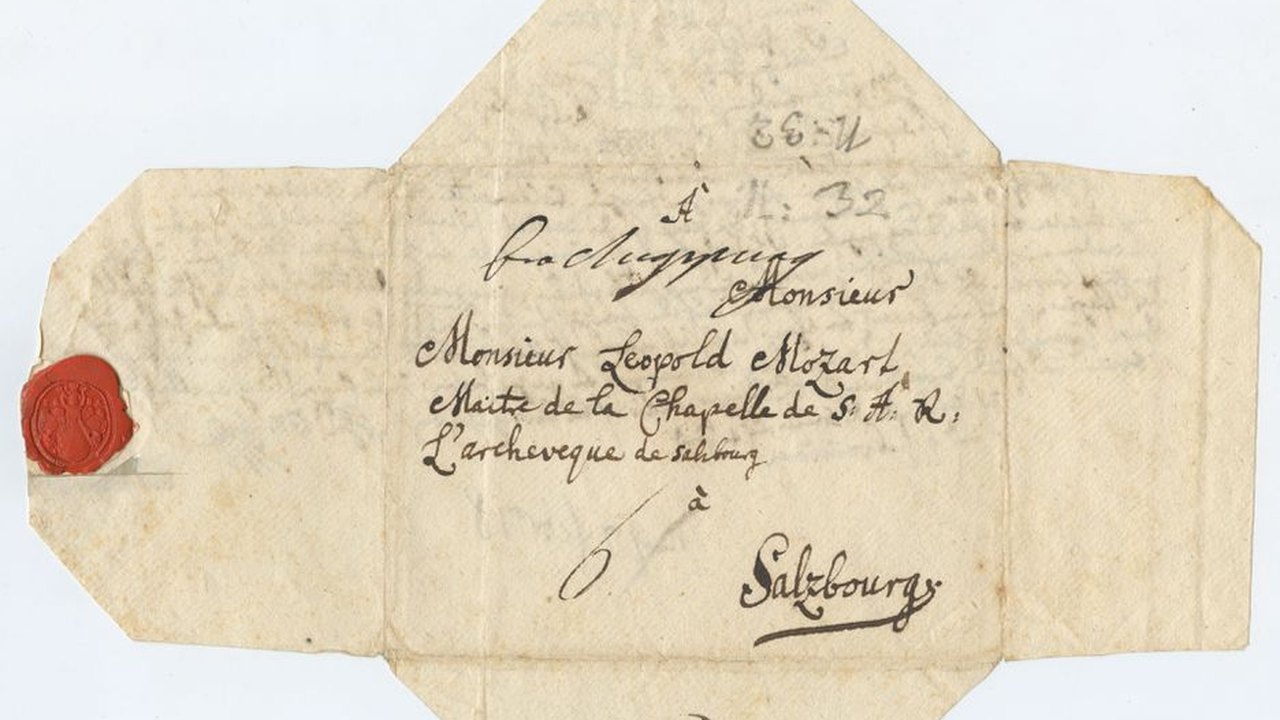 N: 32
À
N: 32
Monsieur
Monsieur Leopold Mozart
Maitre de la Chapelle de S: A: R:
L'archeveque de Salzbourg
à
6.
Salzbourg